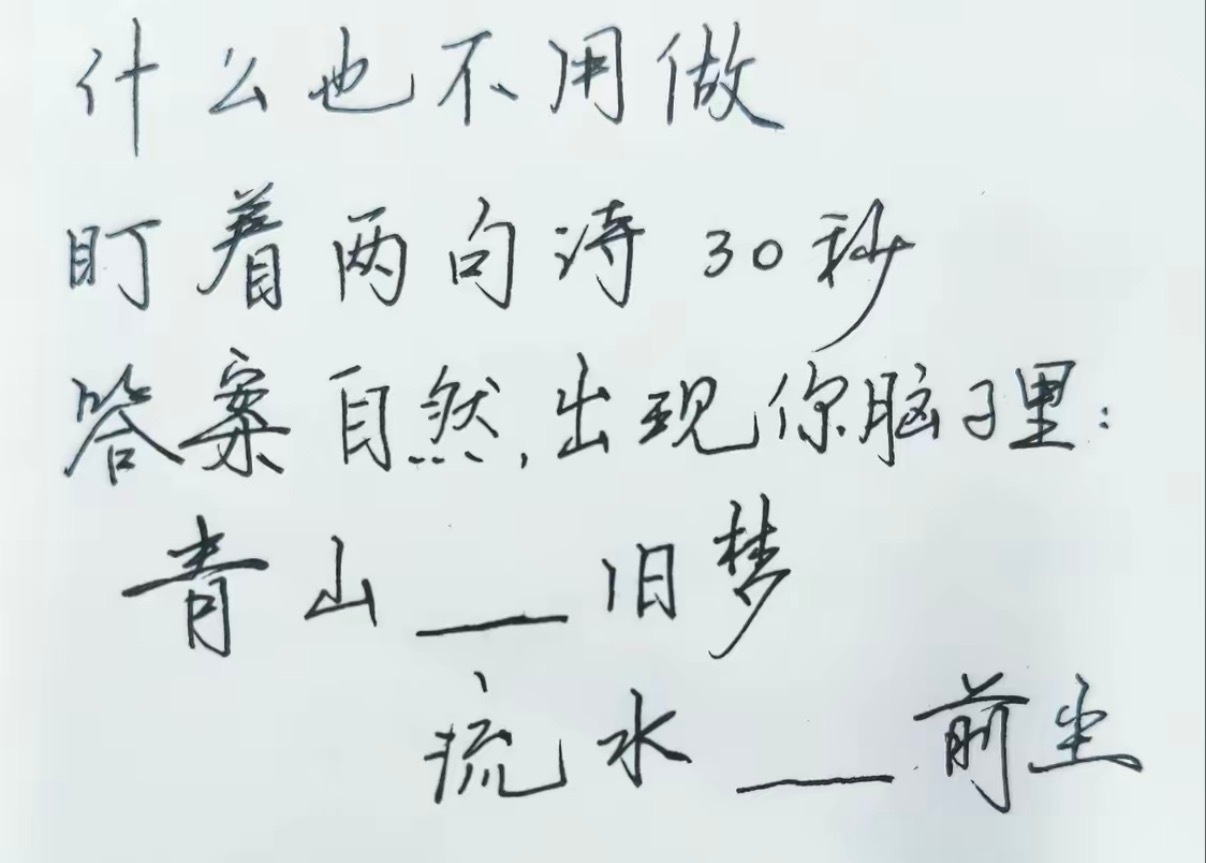 什么也不用做
盯着两句诗30秒
答案自然,出现你脑子里:
青山___旧梦
流水___前尘